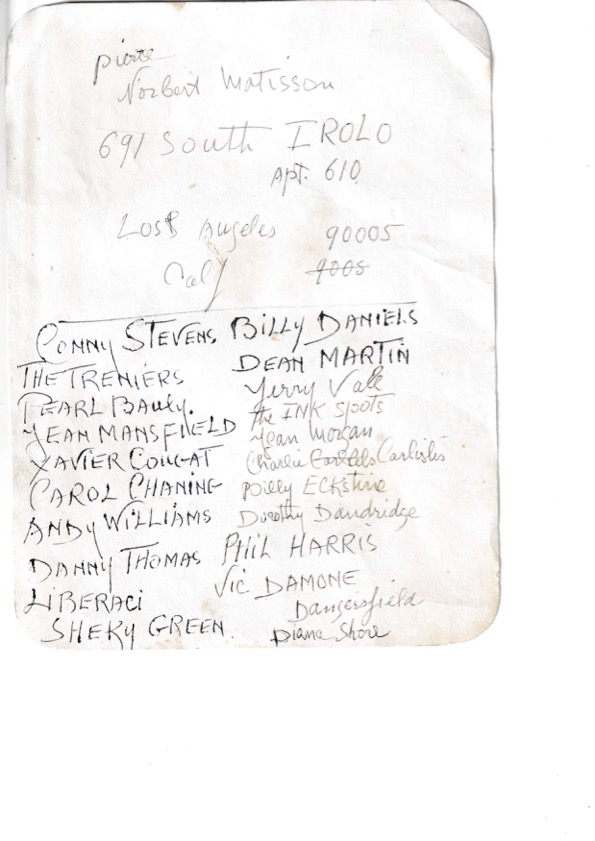 pierre
Norbert Matisson
691 South IROLO
Apt. 610
Los Angeles 90005
Calf 9005
CONNY STEVENS
THE TRENIERS
PEARL BAULY.
JEAN MANSFIELD
XAVIER COUGAT
CAROL CHANING
ANDY WILLIAMS
DANNY THOMAS
LIBERACI
SHEKY GREEN.
BILLY DANIELS
DEAN MARTIN
Jerry Vale
the INK SPOTS
Jean Morgan
Charlie Carlisles
Billy Eckstine
Dorothy Dandridge
PHIL HARRIS
VIC DAMONE
Dangersfield
Diana Shore